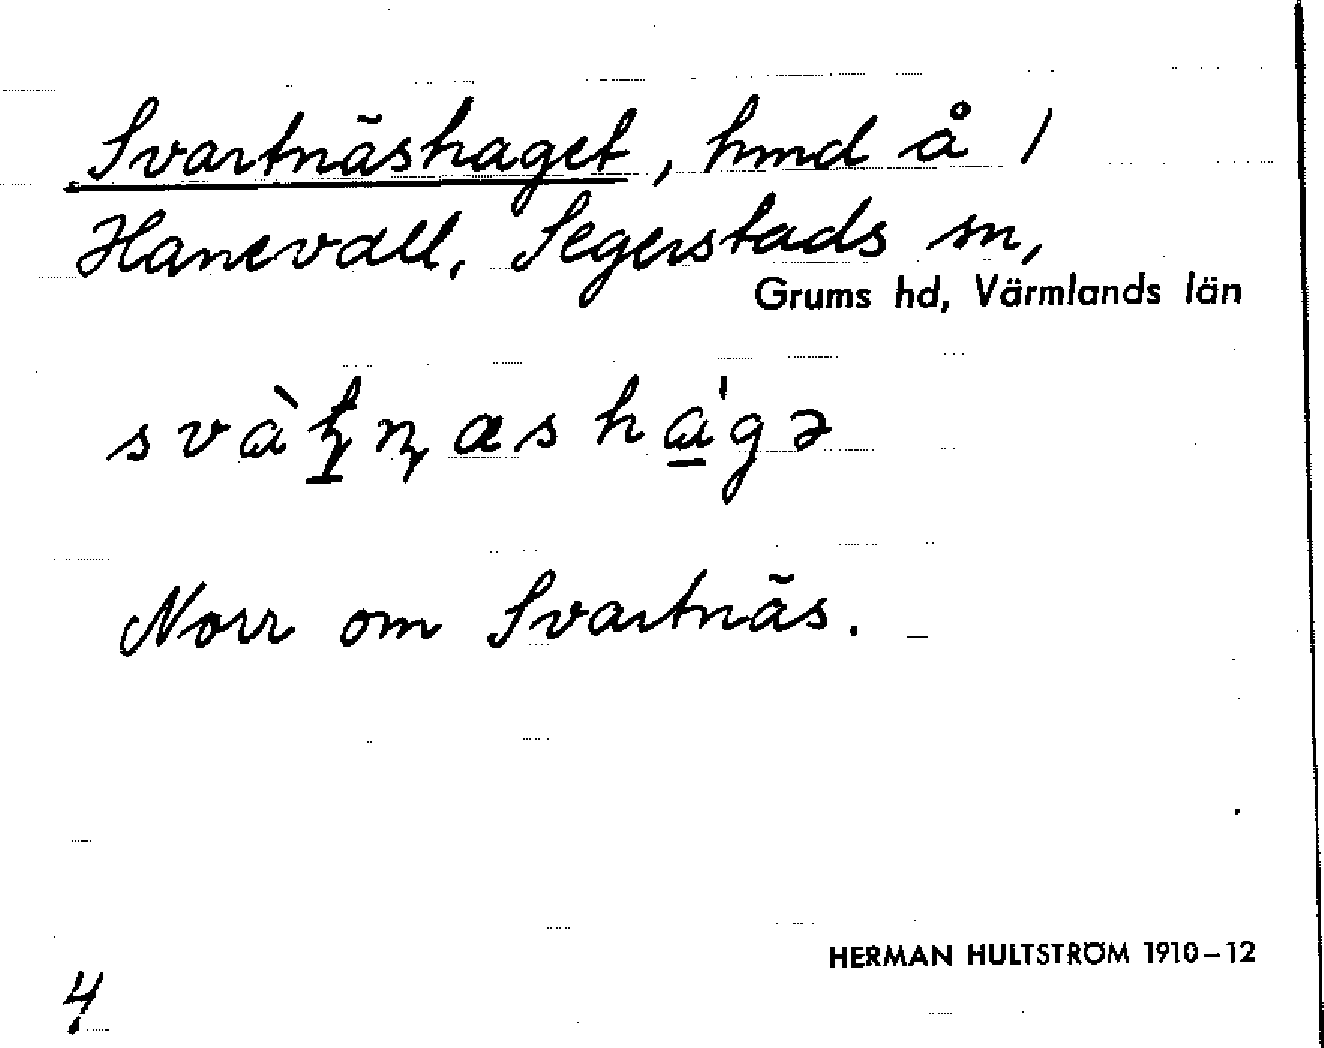 Svartnäshaget, hmd å 1
Hanevall, Segerstads sn,
Grums hd, Värmlands län
Norr om Svartnäs.
HERMAN HULTSTRÖM 1910-12
4